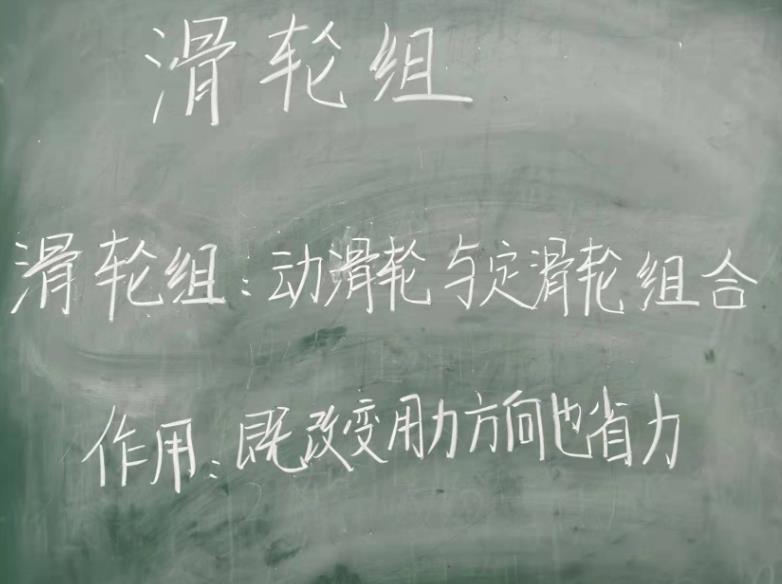 滑轮组
滑轮组:动滑轮与定滑轮组合
作用:既改变用力方向也省力